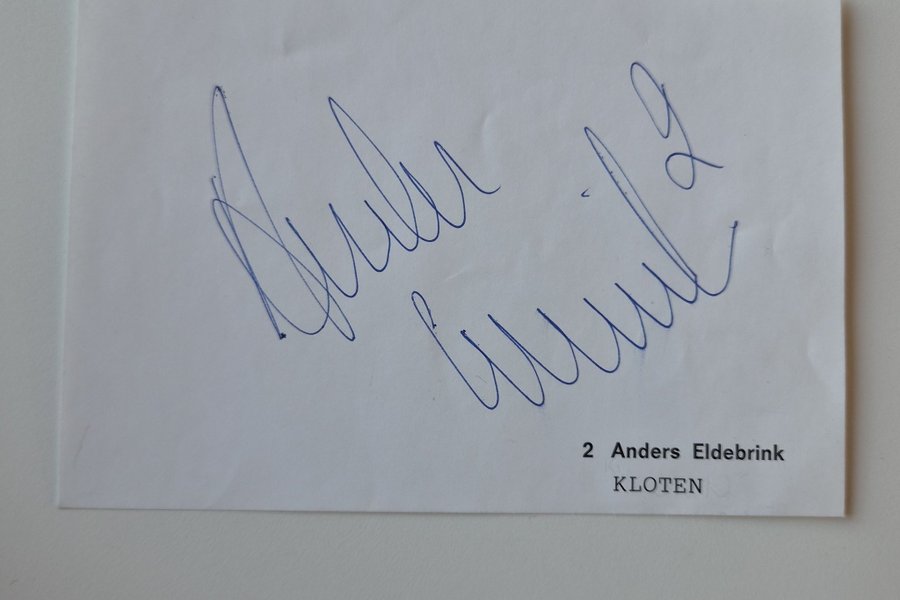 Anders 2
2 Anders Eldebrink
KLOTEN